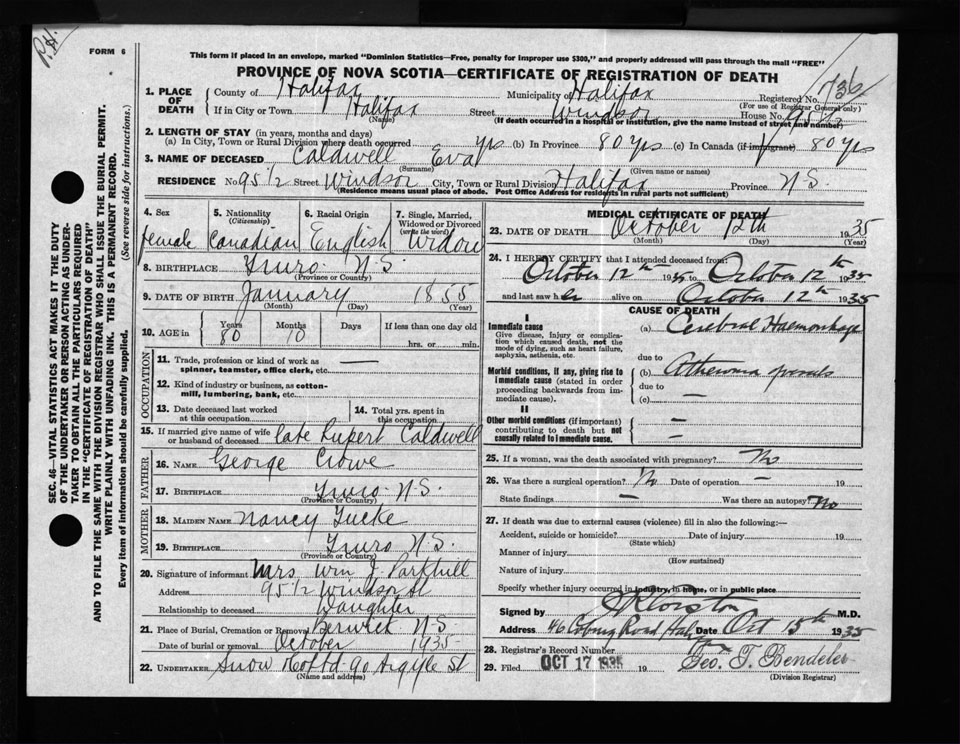 P.H.
FORM 6
This form if placed in an envelope, marked "Dominion Statistics—Free, penalty for improper use $300," and properly addressed will pass through the mail "FREE"
PROVINCE OF NOVA SCOTIA—CERTIFICATE OF REGISTRATION OF DEATH
SEC. 46—VITAL STATISTICS ACT MAKES IT THE DUTY
OF THE UNDERTAKER OR PERSON ACTING AS UNDER-
TAKER TO OBTAIN ALL THE PARTICULARS REQUIRED
IN THE "CERTIFICATE OF REGISTRATION OF DEATH"
AND TO FILE THE SAME WITH THE DIVISION REGISTRAR WHO SHALL ISSUE THE BURIAL PERMIT.
WRITE PLAINLY WITH UNFADING INK. THIS IS A PERMANENT RECORD.
Every item of information should be carefully supplied. (See reverse side for instructions.)
1. PLACE OF DEATH County of Halifax Municipality of Halifax Registered No. 736
(For use of Registrar General only)
If in City or Town Halifax Street Windsor House No. 95 1/2
(Name) (If death occurred in a hospital or institution, give the name instead of street and number)
2. LENGTH OF STAY (in years, months and days)
(a) In City, Town or Rural Division where death occurred yrs (b) In Province 80 yrs (c) In Canada (if immigrant) 80 yrs
3. NAME OF DECEASED Caldwell Eva
(Surname) (Given name or names)
RESIDENCE No 95 1/2 Street Windsor City, Town or Rural Division Halifax Province N.S.
(Residence means usual place of abode. Post Office Address for residents in rural parts not sufficient)
4. Sex 5. Nationality (Citizenship) 6. Racial Origin 7. Single, Married, Widowed or Divorced (write the word)
female Canadian English Widow
8. BIRTHPLACE Truro N.S.
(Province or Country)
9. DATE OF BIRTH January 1855
(Month) (Day) (Year)
10. AGE in Years Months Days If less than one day old
80 10 hrs. or min.
OCCUPATION
11. Trade, profession or kind of work as —
spinner, teamster, office clerk, etc.
12. Kind of industry or business, as cotton-
mill, lumbering, bank, etc.
13. Date deceased last worked at this occupation 14. Total yrs. spent in this occupation
15. If married give name of wife or husband of deceased late Rupert Caldwell
FATHER
16. NAME George Crowe
17. BIRTHPLACE Truro N.S.
(Province or Country)
MOTHER
18. MAIDEN NAME Nancy
19. BIRTHPLACE Truro N.S.
(Province or Country)
20. Signature of informant Mrs Wm J. Parkhill
Address 95 1/2 Windsor St
Relationship to deceased Daughter
21. Place of Burial, Cremation or Removal Berwick N-S
Date of burial or removal October 1935-
22. UNDERTAKER Snow & Co Ltd 90 Argyle St
(Name and address)
MEDICAL CERTIFICATE OF DEATH
23. DATE OF DEATH October 12th 1935
(Month) (Day) (Year)
24. I HEREBY CERTIFY that I attended deceased from
October 12th 1935 to October 12th 1935
and last saw her alive on October 12th 1935
CAUSE OF DEATH
I
Immediate cause (a) Cerebral Haemorrhage
Give disease, injury or complica-
tion which caused death, not the
mode of dying, such as heart failure,
asphyxia, asthenia, etc.
due to
Morbid conditions, if any, giving rise to (b) Atheroma vessels
immediate cause (stated in order
proceeding backwards from im-
mediate cause).
due to
(c) —
II
Other morbid conditions (if important) —
contributing to death but not
causally related to immediate cause. —
25. If a woman, was the death associated with pregnancy? No
26. Was there a surgical operation? No Date of operation — 19
State findings — Was there an autopsy? No
27. If death was due to external causes (violence) fill in also the following:—
Accident, suicide or homicide? Date of injury 19
(State which)
Manner of injury
(How sustained)
Nature of injury
Specify whether injury occurred in industry, in home, or in public place
Signed by M.D.
Address 46 Coburg Road Hal Date Oct 15th 1935
28. Registrar's Record Number
29. Filed OCT 17 1935 19 Geo. T. Bendeler
(Division Registrar)